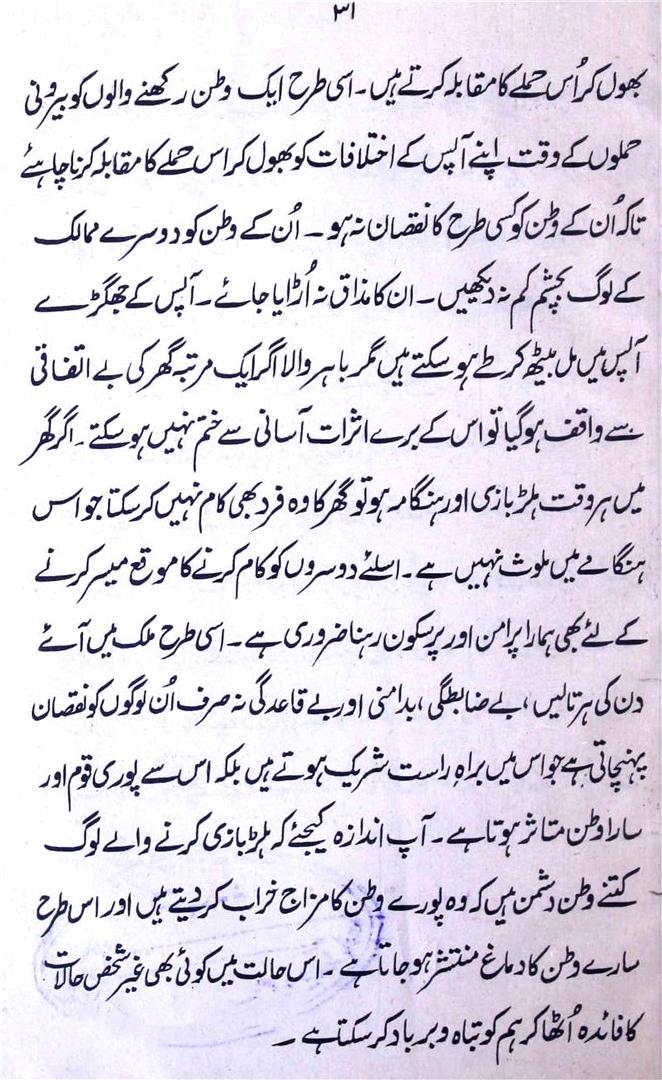 ۳۱
بھول کر اُس حملے کا مقابلہ کرتے ہیں۔ اسی طرح ایک وطن رکھنے والوں کو بیرونی
حملوں کے وقت اپنے آپس کے اختلافات کو بھول کر اس حملے کا مقابلہ کرنا چاہئے
تاکہ اُن کے وطن کو کسی طرح کا نقصان نہ ہو۔ اُن کے وطن کو دوسرے ممالک
کے لوگ بچشم کم نہ دیکھیں۔ ان کا مذاق نہ اُڑایا جائے۔ آپس کے جھگڑے
آپس میں مل بیٹھ کر طے ہو سکتے ہیں مگر باہر والا اگر ایک مرتبہ گھر کی بے اتفاقی
سے واقف ہو گیا تو اس کے برے اثرات آسانی سے ختم نہیں ہو سکتے۔ اگر گھر
میں ہر وقت ہلڑ بازی اور ہنگامہ ہو تو گھر کا وہ فرد بھی کام نہیں کر سکتا جو اس
ہنگامے میں ملوث نہیں ہے۔ اسلئے دوسروں کو کام کرنے کا موقع میسر کرنے
کے لئے بھی ہمارا پرامن اور پرسکون رہنا ضروری ہے۔ اسی طرح ملک میں آئے
دن کی ہڑتالیں، بے ضابطگی، بدامنی اور بے قاعدگی نہ صرف اُن لوگوں کو نقصان
پہنچاتی ہے جو اس میں براہِ راست شریک ہوتے ہیں بلکہ اس سے پوری قوم اور
سارا وطن متاثر ہوتا ہے۔ آپ اندازہ کیجئے کہ ہلڑ بازی کرنے والے لوگ
کتنے وطن دشمن ہیں کہ وہ پورے وطن کا مزاج خراب کر دیتے ہیں اور اس طرح
سارے وطن کا دماغ منتشر ہو جاتا ہے۔ اس حالت میں کوئی بھی غیر شخص حالات
کا فائدہ اُٹھا کر ہم کو تباہ و برباد کر سکتا ہے۔